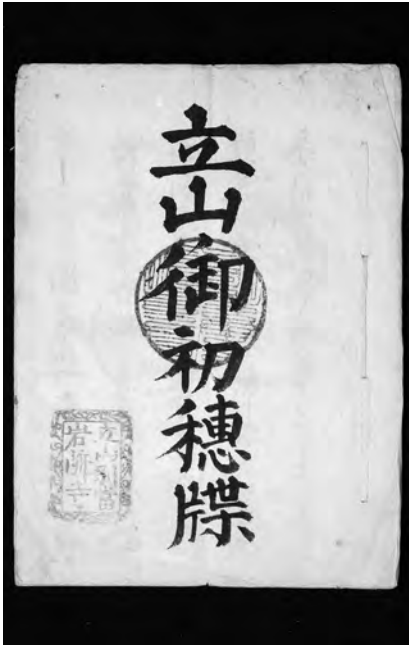 立山御初穂牒
立山別當
岩峅寺